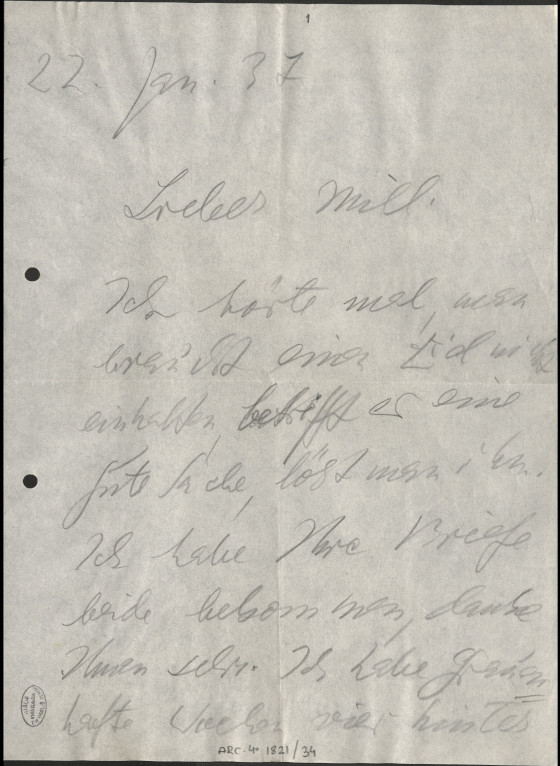 1
22. Jan. 37
Lieber Mill.
Ich hörte mal, man
braucht einen Eid nicht
einhalten, betrifft er eine
gute Sache, löst man ihn.
Ich habe Ihre Briefe
beide bekommen, danke
Ihnen sehr. Ich habe grauen
hafte Wochen vier hinter
ARC. 4° 1821/34